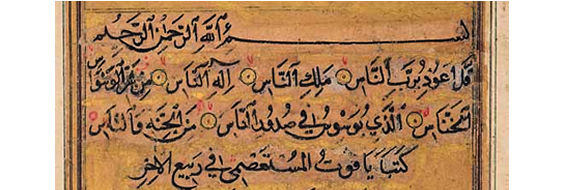 بسم الله الرحمن الرحيم
قل اعوذ برب الناس ملك الناس اله الناس من شر الوسواس
الخناس الذي يوسوس في صدور الناس من الجنة والناس
كتبه ياقوت المستعصمي في ربيع الاخر